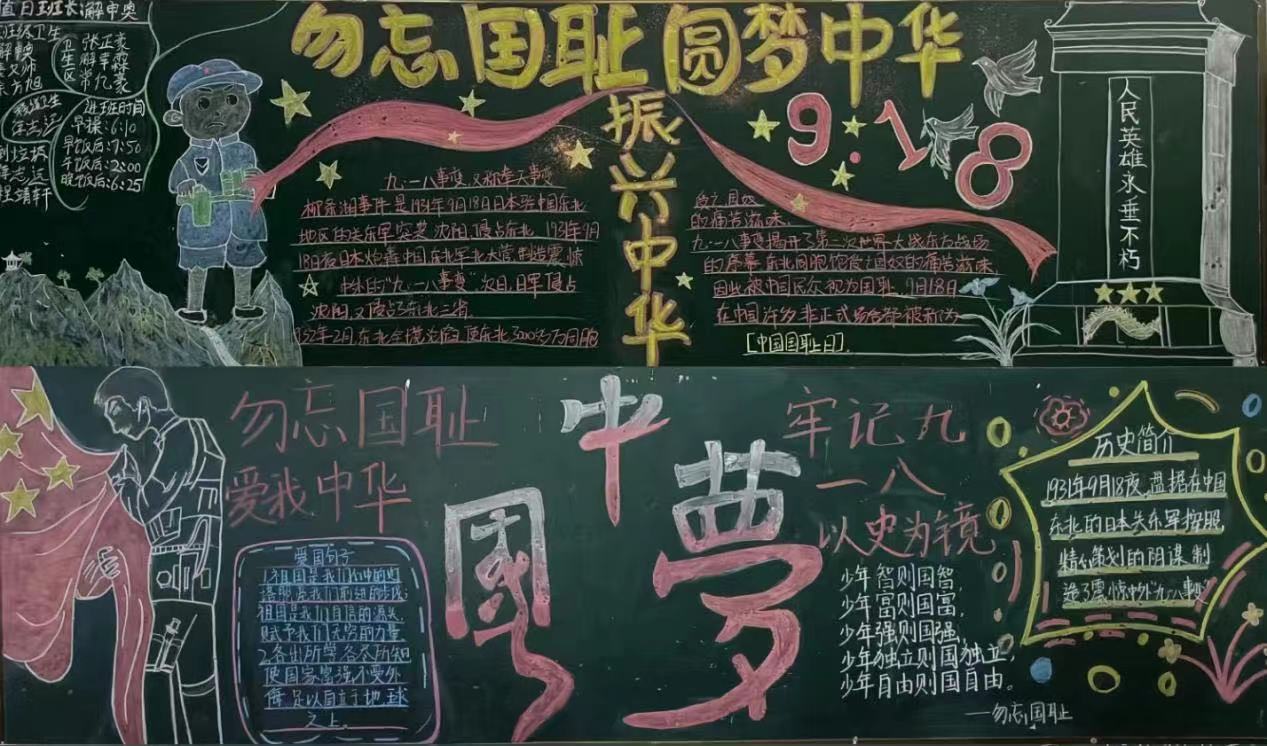 勿忘国耻 圆梦中华
值日班长:解申奥
卫生区
张正豪
解宇霖
常九豪
进班时间
早操:6:10
早饭后:7:50
午饭后:2:00
晚饭后:6:25
程靖轩
振兴中华
9.18
九·一八事变,又称奉天事变
柳条湖事件是1931年9月18日日本在中国东北
地区的关东军突袭沈阳,侵占东北 1931年9月
18日夜日本炮轰中国东北军北大营制造震惊
中外的“九·一八事变”次日,日军侵占
沈阳,又侵占东北三省.
1932年2月,东北全境沦陷,使东北3000多万同胞
的痛苦滋味
九·一八事变揭开了第二次世界大战东方战场
的序幕,东北同胞饱食了亡奴的痛苦滋味.
因此被中国民众视为国耻,9月18日
在中国许多非正式场合都被称为
[中国国耻日].
人民英雄永垂不朽
勿忘国耻
爱我中华
爱国句子
1.祖国是我们心中的灯
塔照亮我们前进的步伐;
祖国是我们自信的源头,
赋予我们无穷的力量
2.各出所学,各尽所知
使国家富强不受外
侮,足以自立于地球
之上。
中国梦
牢记九
一八
以史为镜
少年智则国智,
少年富则国富,
少年强则国强,
少年独立则国独立,
少年自由则国自由。
——勿忘国耻
历史简介
1931年9月18夜,盘据在中国
东北的日本关东军按照
精心策划的阴谋,制
造了震惊中外“九·八事变”